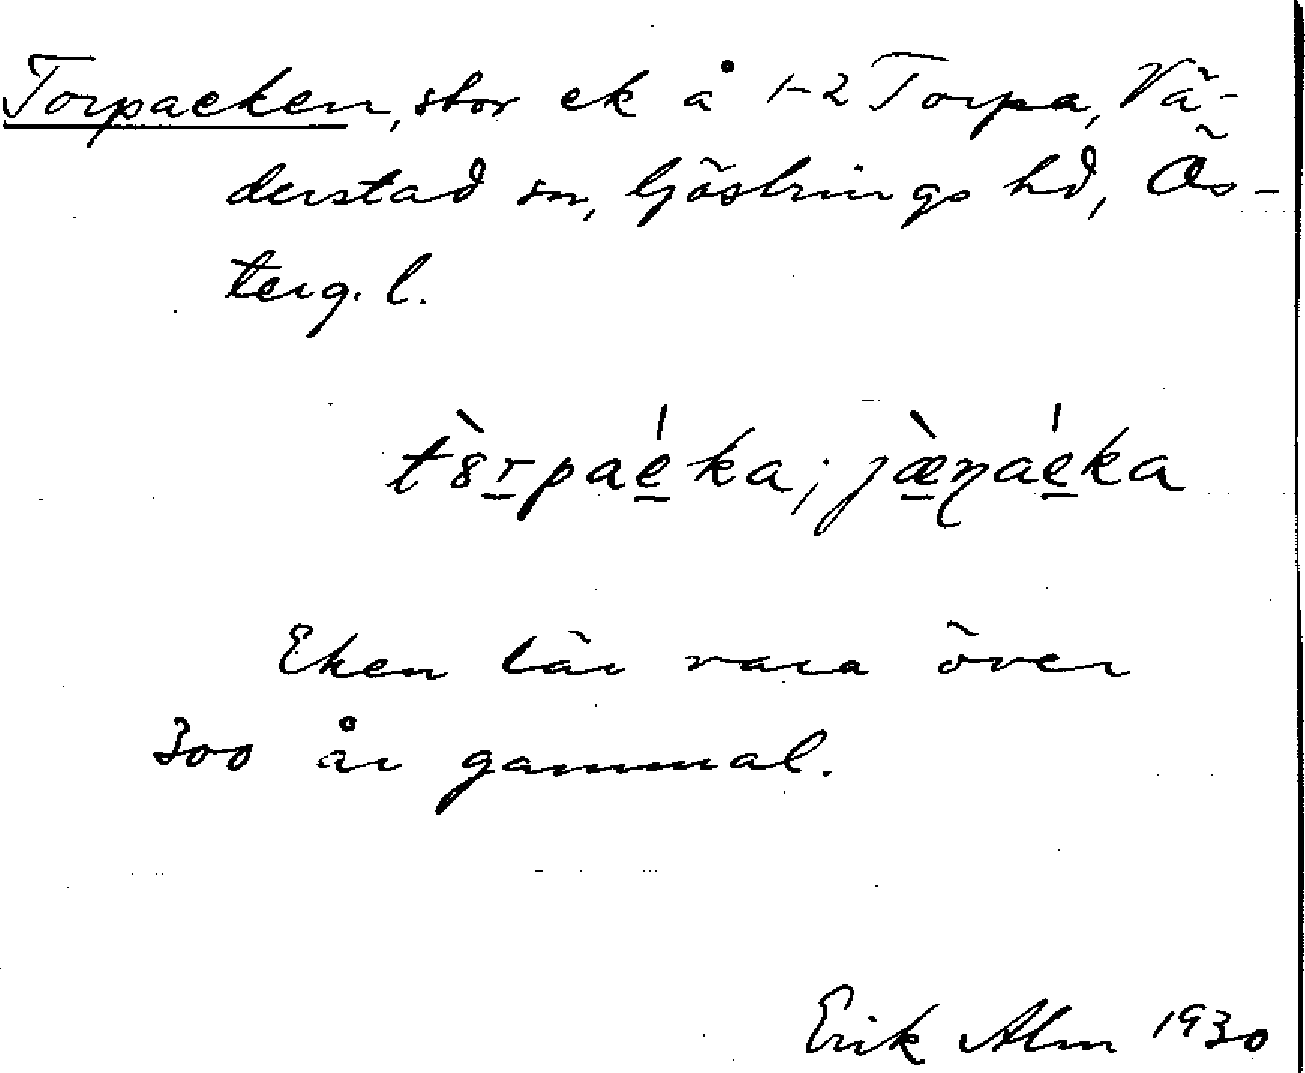 Torpaeken, stor ek å 1-2 Torpa, Vä-
derstad sn, Göstrings hd, Ös-
terg. l.
t8̀r̲paé̲ka; jæ̲̀ŋaé̲ka
Eken lär vara över
300 år gammal.
Erik Alm 1930